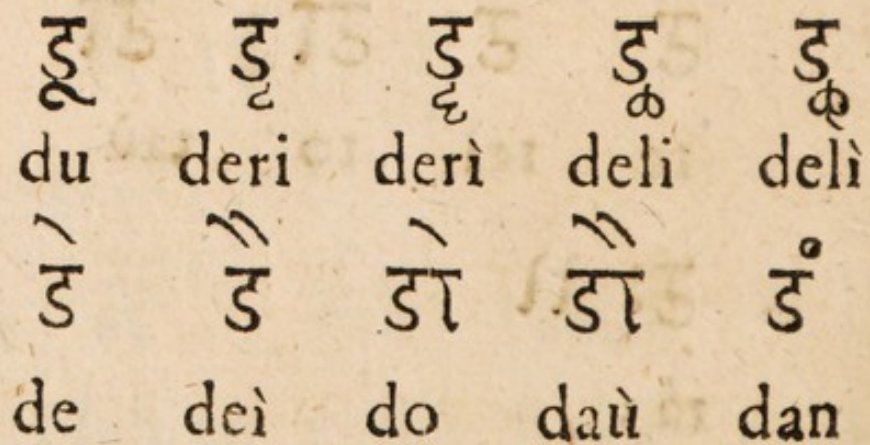 डू डृ डॄ डॢ डॣ
du deri derì deli delì
डे डै डो डौ डं
de deì do daù dan